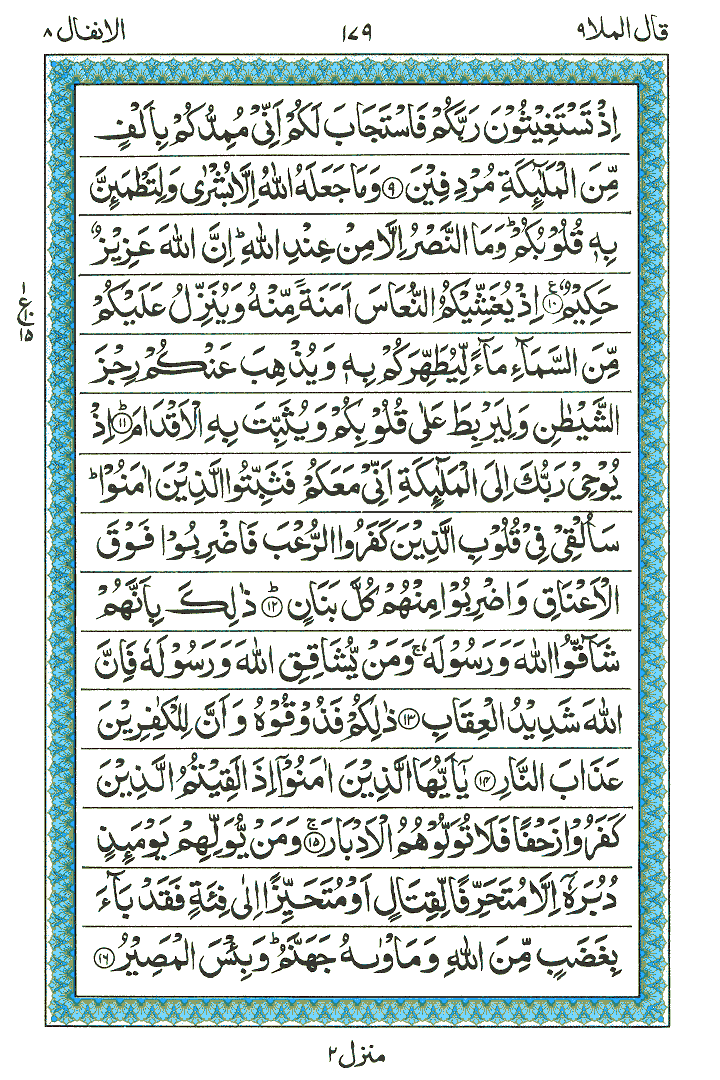 قال الملا۹
۱۷۹
الانفال ۸
اِذۡ تَسۡتَغِيۡثُوۡنَ رَبَّكُمۡ فَاسۡتَجَابَ لَكُمۡ اَنِّىۡ مُمِدُّكُمۡ بِاَلۡفٍ
مِّنَ الۡمَلٰٓٮِٕكَةِ مُرۡدِفِيۡنَ ۹ وَمَا جَعَلَهُ اللّٰهُ اِلَّا بُشۡرٰى وَلِتَطۡمَٮِٕنَّ
بِهٖ قُلُوۡبُكُمۡ‌ؕ وَمَا النَّصۡرُ اِلَّا مِنۡ عِنۡدِ اللّٰهِ‌ؕ اِنَّ اللّٰهَ عَزِيۡزٌ
حَكِيۡمٌ ۱۰ اِذۡ يُغَشِّيۡكُمُ النُّعَاسَ اَمَنَةً مِّنۡهُ وَيُنَزِّلُ عَلَيۡكُمۡ
۱
ع
۱۰
۱۵
مِّنَ السَّمَآءِ مَآءً لِّيُطَهِّرَكُمۡ بِهٖ وَيُذۡهِبَ عَنۡكُمۡ رِجۡزَ
الشَّيۡطٰنِ وَلِيَرۡبِطَ عَلٰى قُلُوۡبِكُمۡ وَيُثَبِّتَ بِهِ الۡاَقۡدَامَؕ ۱۱ اِذۡ
يُوۡحِىۡ رَبُّكَ اِلَى الۡمَلٰٓٮِٕكَةِ اَنِّىۡ مَعَكُمۡ فَثَبِّتُوا الَّذِيۡنَ اٰمَنُوۡا‌ؕ
سَاُلۡقِىۡ فِىۡ قُلُوۡبِ الَّذِيۡنَ كَفَرُوا الرُّعۡبَ فَاضۡرِبُوۡا فَوۡقَ
الۡاَعۡنَاقِ وَاضۡرِبُوۡا مِنۡهُمۡ كُلَّ بَنَانٍؕ ۱۲ ذٰلِكَ بِاَنَّهُمۡ
شَآقُّوا اللّٰهَ وَرَسُوۡلَهٗ‌ۚ وَمَنۡ يُّشَاقِقِ اللّٰهَ وَرَسُوۡلَهٗ فَاِنَّ
اللّٰهَ شَدِيۡدُ الۡعِقَابِ ۱۳ ذٰلِكُمۡ فَذُوۡقُوۡهُ وَاَنَّ لِلۡكٰفِرِيۡنَ
عَذَابَ النَّارِ ۱۴ يٰۤاَيُّهَا الَّذِيۡنَ اٰمَنُوۡۤا اِذَا لَقِيۡتُمُ الَّذِيۡنَ
كَفَرُوۡا زَحۡفًا فَلَا تُوَلُّوۡهُمُ الۡاَدۡبَارَ‌ۚ ۱۵ وَمَنۡ يُّوَلِّهِمۡ يَوۡمَٮِٕذٍ
دُبُرَهٗۤ اِلَّا مُتَحَرِّفًا لِّقِتَالٍ اَوۡ مُتَحَيِّزًا اِلٰى فِئَةٍ فَقَدۡ بَآءَ
بِغَضَبٍ مِّنَ اللّٰهِ وَمَاۡوٰٮهُ جَهَنَّمُ‌ؕ وَبِئۡسَ الۡمَصِيۡرُ ۱۶
منزل ۲